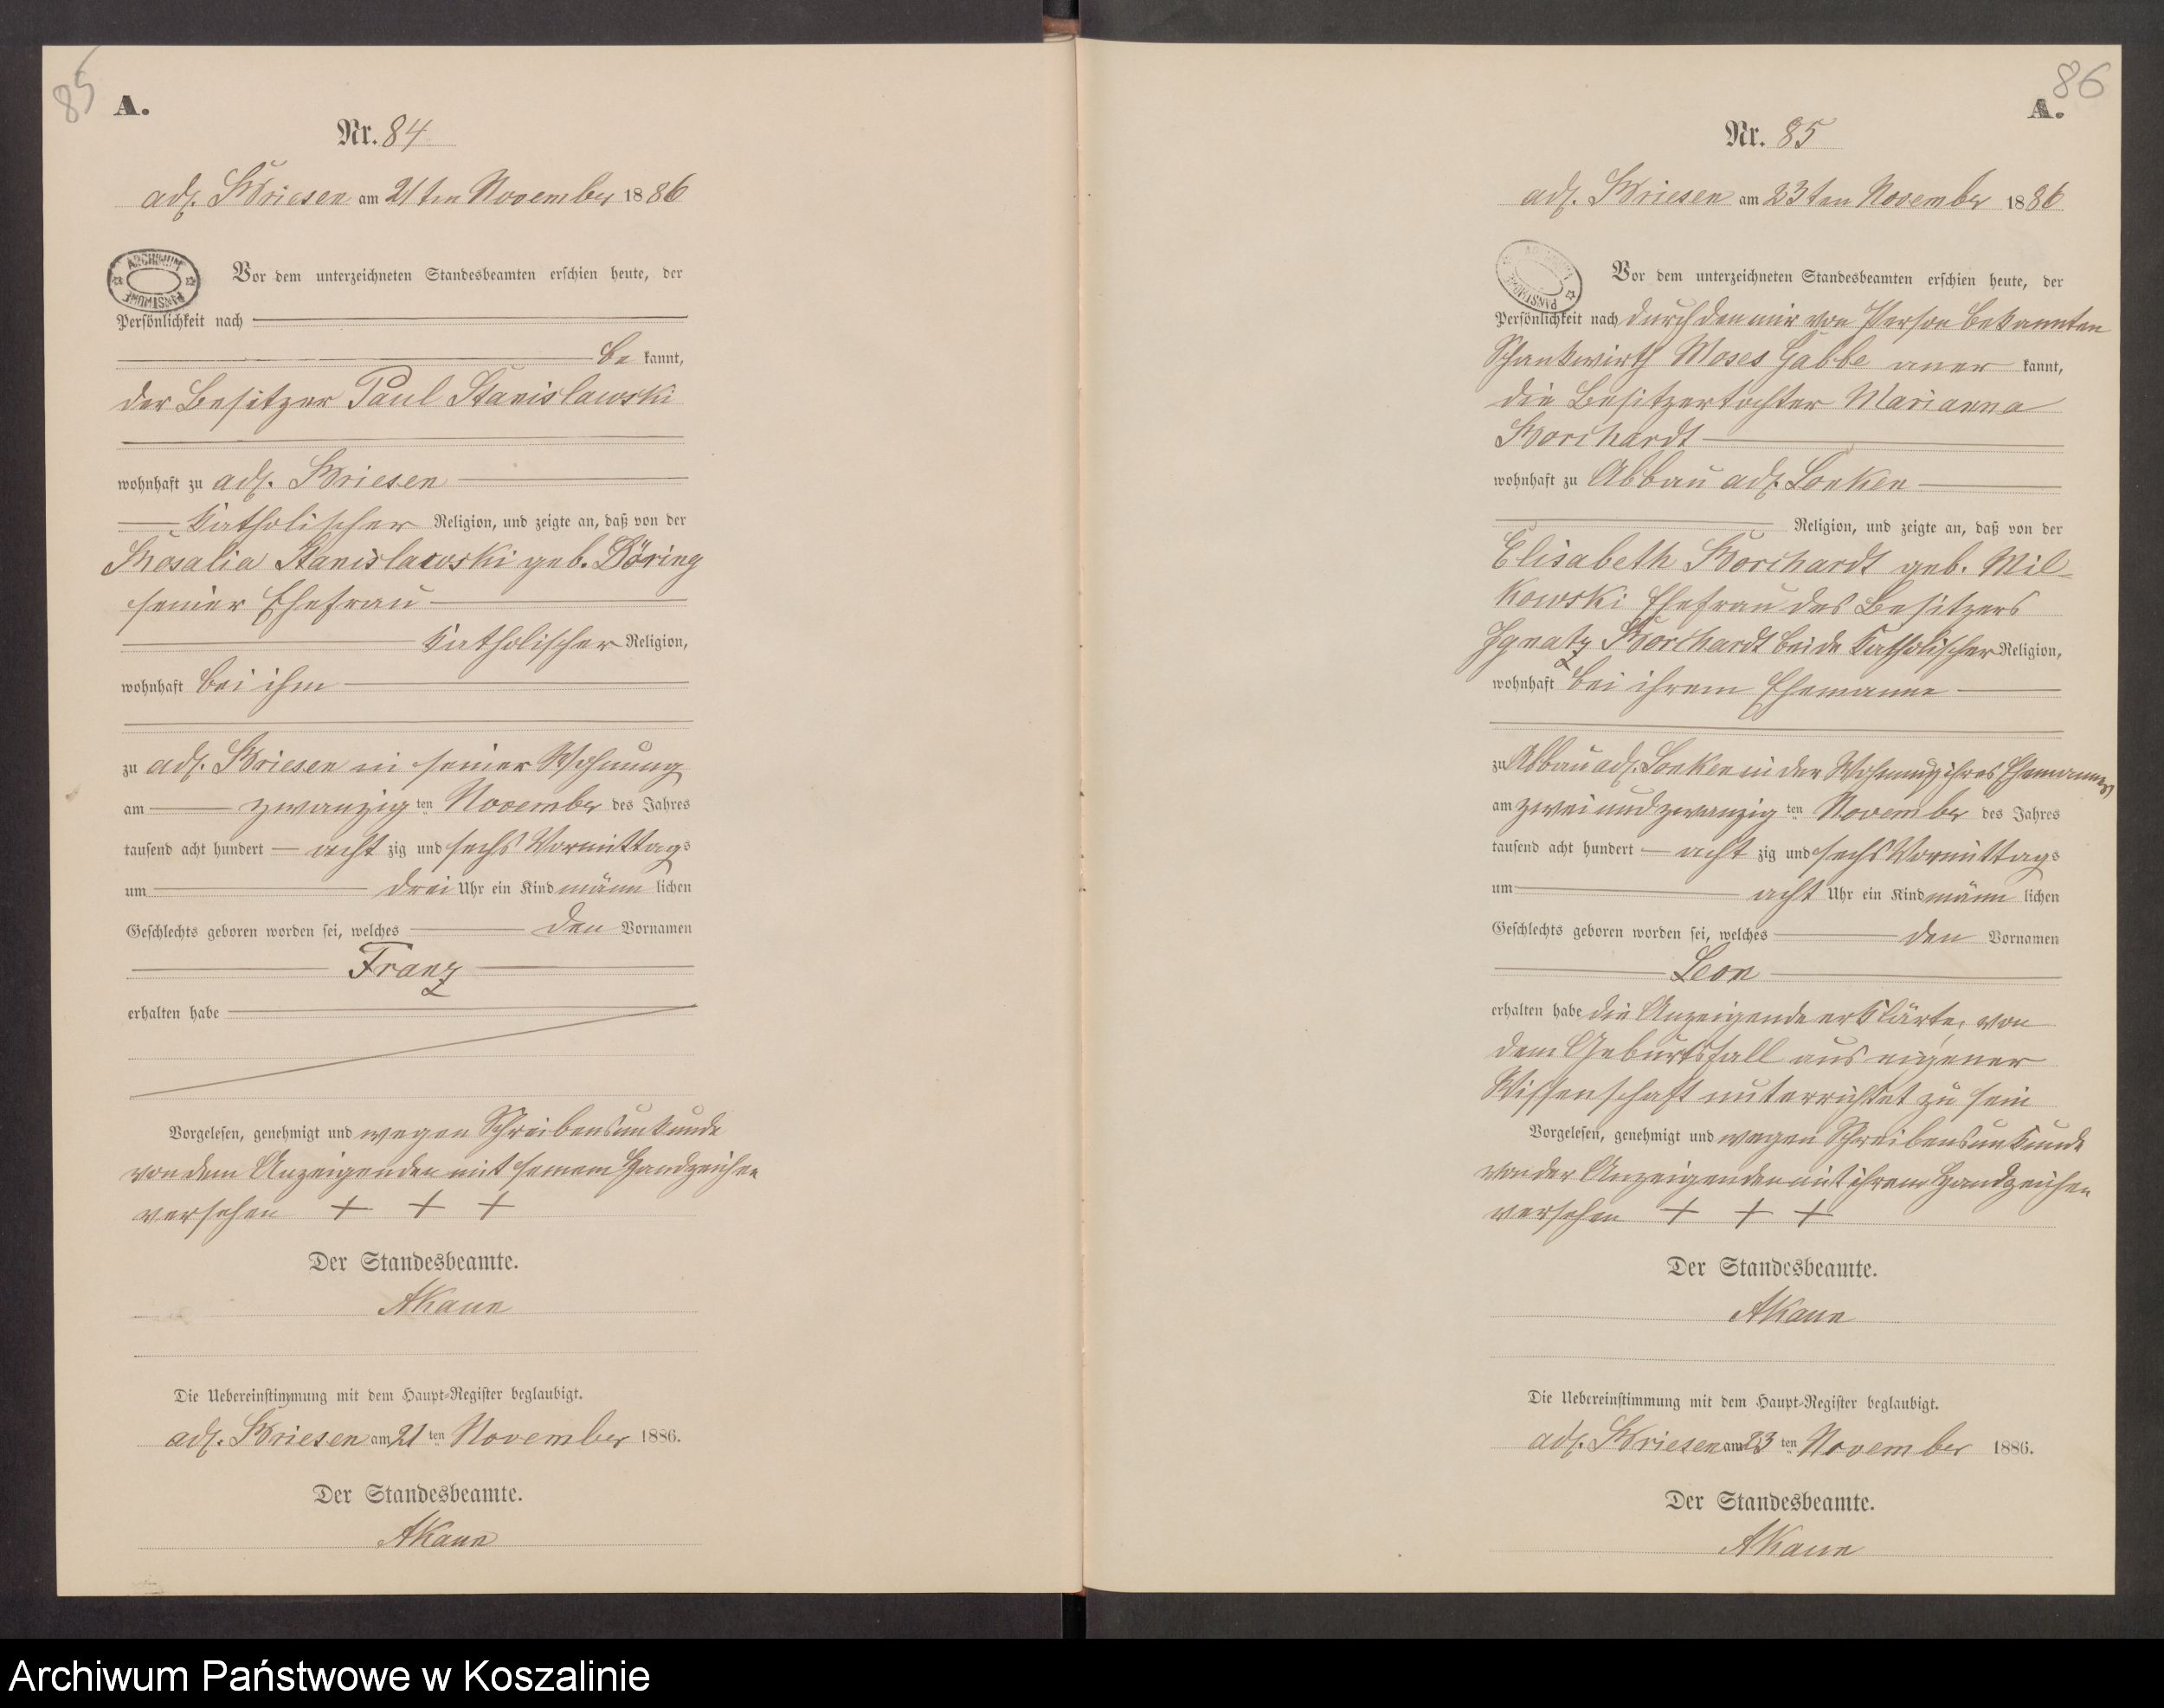 85
A.
Nr. 84
adl. Briesen am 21ten November 1886
ARCHIWUM PAŃSTWOWE
Vor dem unterzeichneten Standesbeamten erschien heute, der
Persönlichkeit nach
be kannt,
der Besitzer Paul Stanislawski
wohnhaft zu adl. Briesen
katholischer Religion, und zeigte an, daß von der
Rosalia Stanislawski geb. Döring
seiner Ehefrau
katholischer Religion,
wohnhaft bei ihm
zu adl. Briesen in seiner Wohnung
am zwanzig ten November des Jahres
tausend acht hundert acht zig und sechs Vormittags
um drei Uhr ein Kind männ lichen
Geschlechts geboren worden sei, welches den Vornamen
Franz
erhalten habe
Vorgelesen, genehmigt und wegen Schreibensunkunde
von dem Anzeigenden mit seinem Handzeichen
versehen + + +
Der Standesbeamte.
AKaun
Die Uebereinstimmung mit dem Haupt-Register beglaubigt.
adl. Briesen am 21 ten November 1886.
Der Standesbeamte.
AKaun
86
A.
Nr. 85
adl. Briesen am 23ten November 1886
ARCHIWUM PAŃSTWOWE
Vor dem unterzeichneten Standesbeamten erschien heute, der
Persönlichkeit nach durch den mir von Person bekannten
Schankwirth Moses Gabbe aner kannt,
die Besitzertochter Marianna
Borchardt
wohnhaft zu Abbau adl. Lonken
Religion, und zeigte an, daß von der
Elisabeth Borchardt geb. Mil-
kowski Ehefrau des Besitzers
Ignatz Borchardt beide katholischer Religion,
wohnhaft bei ihrem Ehemanne
zu Abbau adl. Lonken in der Wohnung ihres Ehemannes
am zwei und zwanzig ten November des Jahres
tausend acht hundert acht zig und sechs Vormittags
um acht Uhr ein Kind männ lichen
Geschlechts geboren worden sei, welches den Vornamen
Leon
erhalten habe die Anzeigende erklärte, von
dem Geburtsfall aus eigener
Wissenschaft unterrichtet zu sein
Vorgelesen, genehmigt und wegen Schreibensunkunde
von der Anzeigenden mit ihrem Handzeichen
versehen + + +
Der Standesbeamte.
AKaun
Die Uebereinstimmung mit dem Haupt-Register beglaubigt.
adl. Briesen am 23 ten November 1886.
Der Standesbeamte.
AKaun
Archiwum Państwowe w Koszalinie